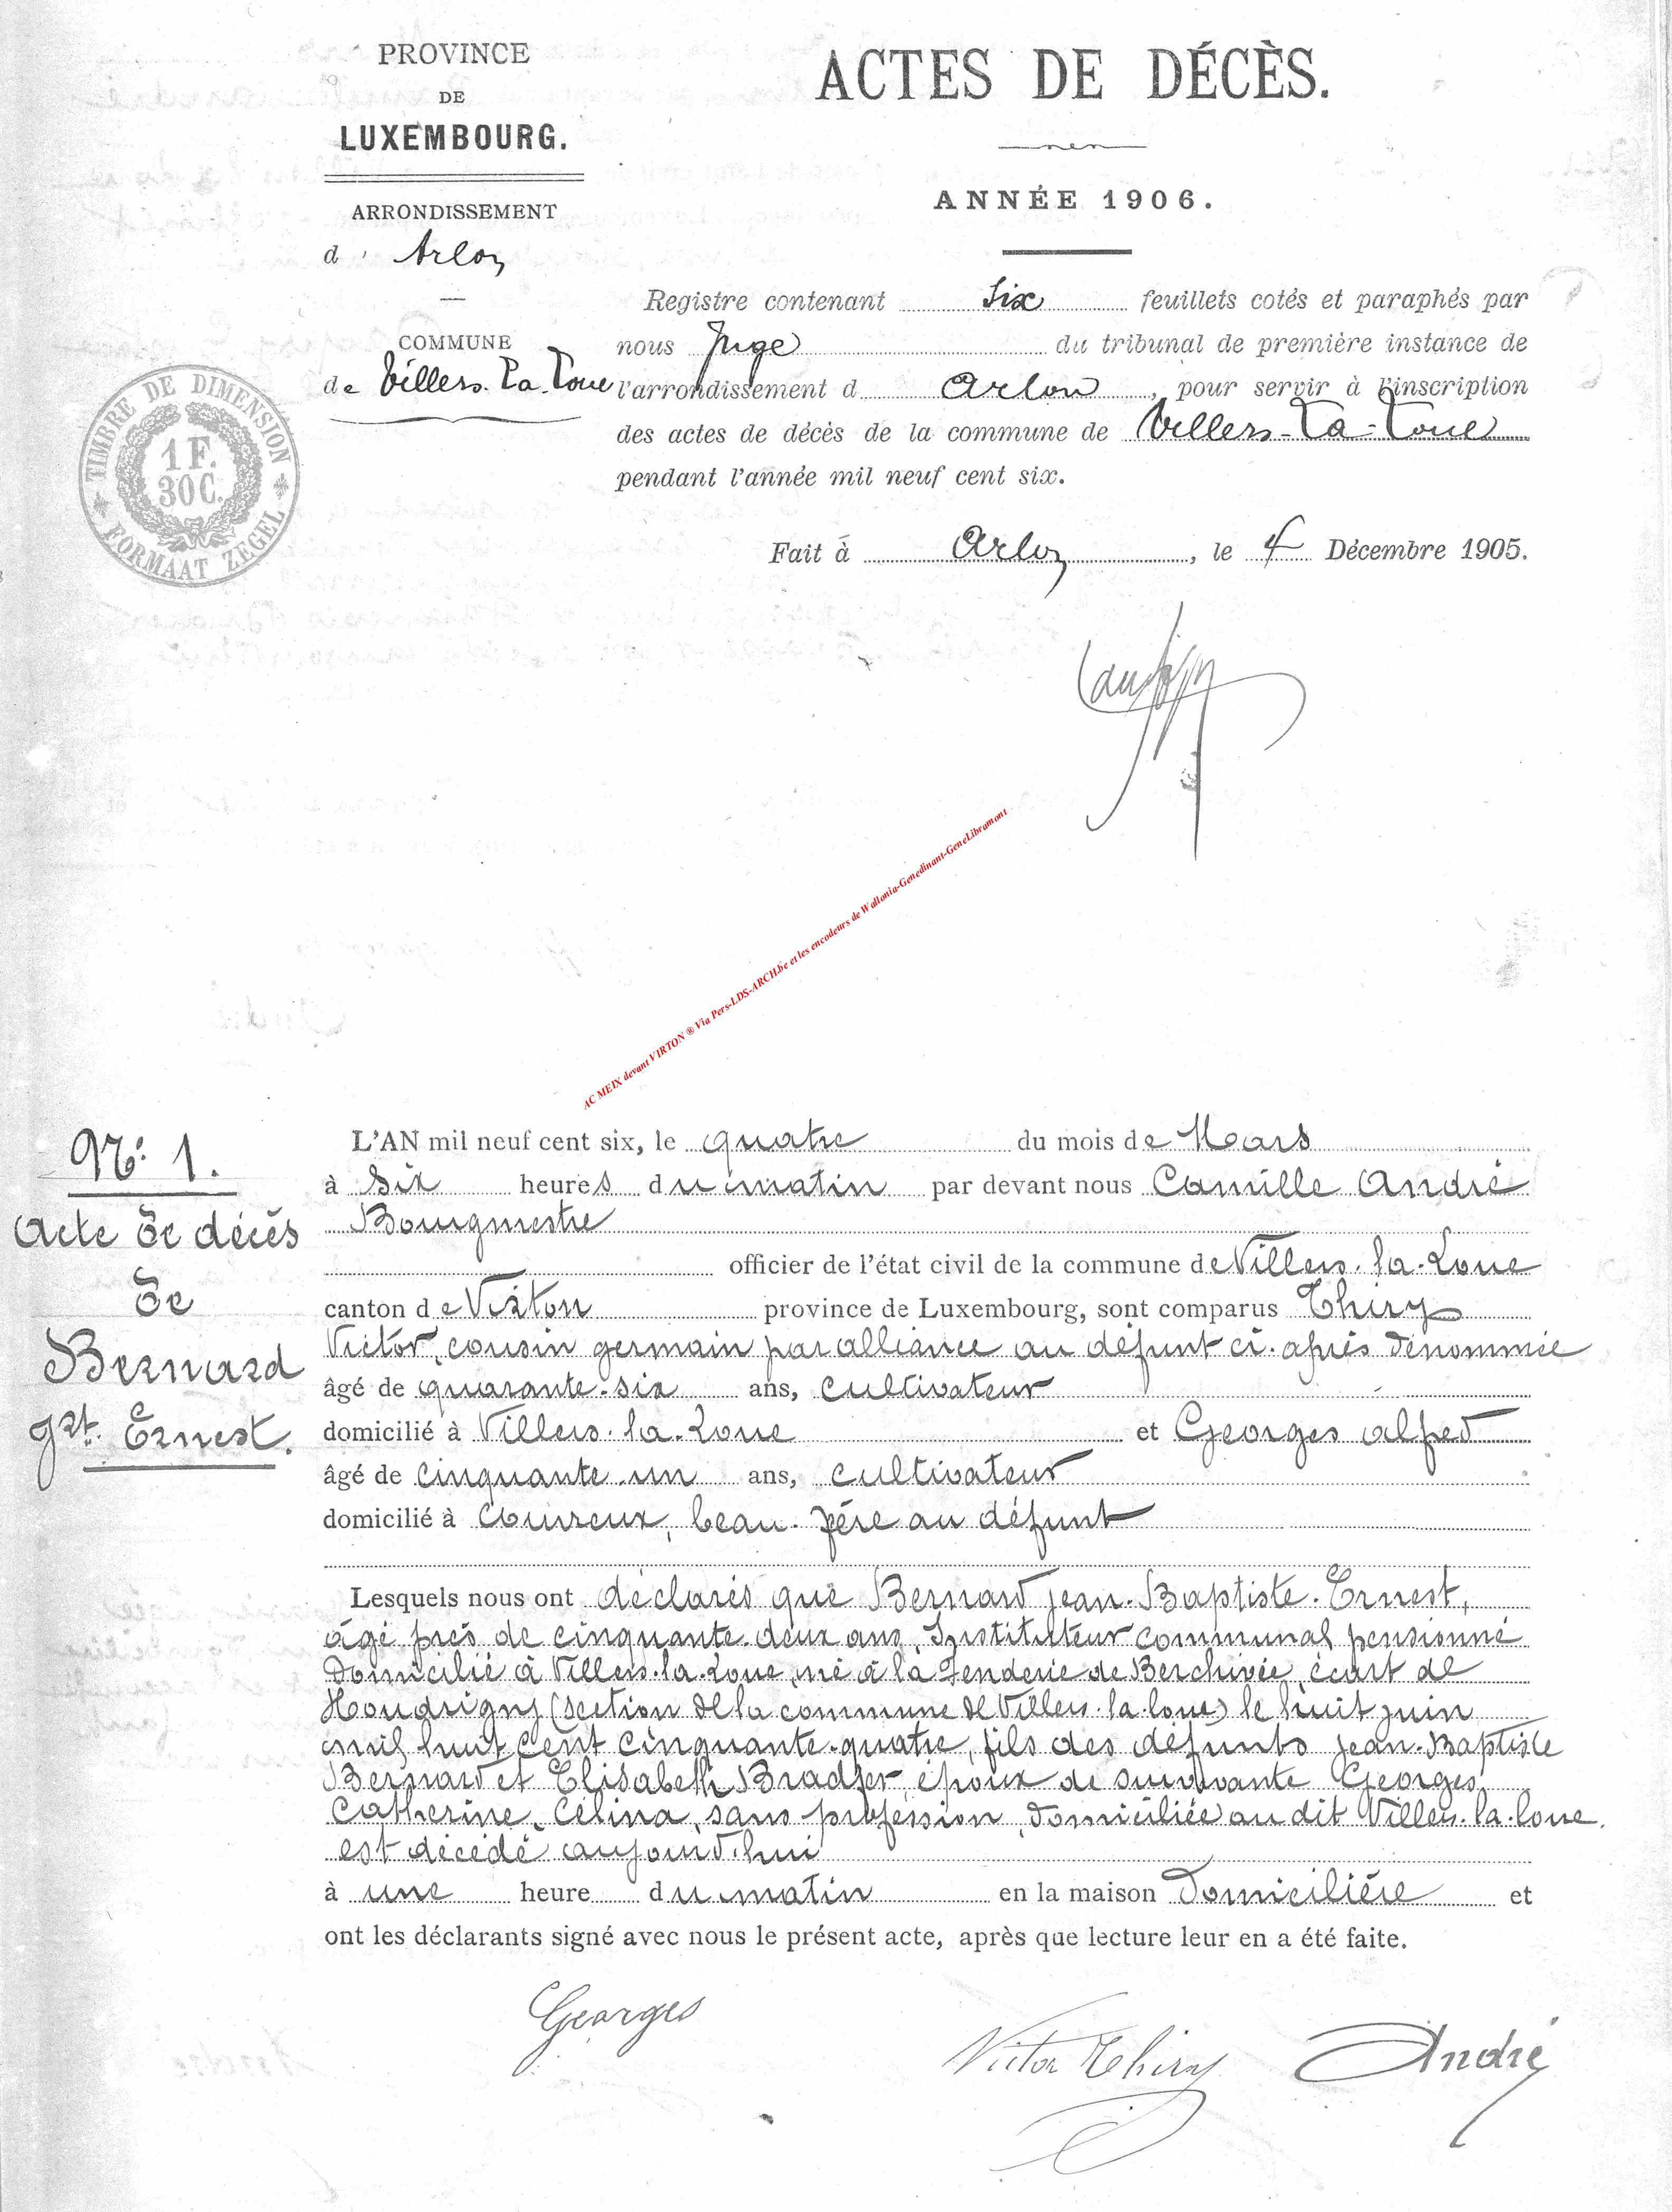 PROVINCE
DE
LUXEMBOURG.
ARRONDISSEMENT
d' Arlon
COMMUNE
de Villers-la-Loue
TIMBRE DE DIMENSION
1 F.
30 C.
FORMAAT ZEGEL
ACTES DE DÉCÈS.
ANNÉE 1906.
Registre contenant Six feuillets cotés et paraphés par
nous Juge du tribunal de première instance de
l'arrondissement d Arlon, pour servir à l'inscription
des actes de décès de la commune de Villers-la-Loue
pendant l'année mil neuf cent six.
Fait à Arlon, le 4 Décembre 1905.
AC MEIX devant VIRTON ® Via Pers-LDS-ARCH.be et les encodeurs de Wallonia-Genedinant-GeneLibramont
No: 1.
Acte de décés
de
Bernard
Jn Bt Ernest.
L'AN mil neuf cent six, le quatre du mois de Mars
à Six heures du matin par devant nous Camille André
Bourgmestre
officier de l'état civil de la commune de Villers-la-Loue
canton de Virton province de Luxembourg, sont comparus Thiry
Victor, cousin germain par alliance au défunt ci-après dénommée
âgé de quarante-six ans, cultivateur
domicilié à Villers-la-Loue et Georges alfred
âgé de cinquante-un ans, cultivateur
domicilié à Couvreux, beau-frère au défunt
Lesquels nous ont déclarés que Bernard Jean-Baptiste-Ernest,
âgé près de cinquante-deux ans, Instituteur communal pensionné
domicilié à Villers-la-Loue, né à la Fenderie de Berchivée, écart de
Houdrigny (section de la commune de Villers-la-loue) le huit juin
mil huit cent cinquante-quatre, fils des défunts Jean-Baptiste
Bernard et Elisabeth Bradfer, époux de survivante Georges,
Catherine, Célina, sans profession, domiciliée au dit Villers-la-loue.
est décédé aujourd'hui
à une heure du matin en la maison domicilière et
ont les déclarants signé avec nous le présent acte, après que lecture leur en a été faite.
Georges
Victor Thiry
André